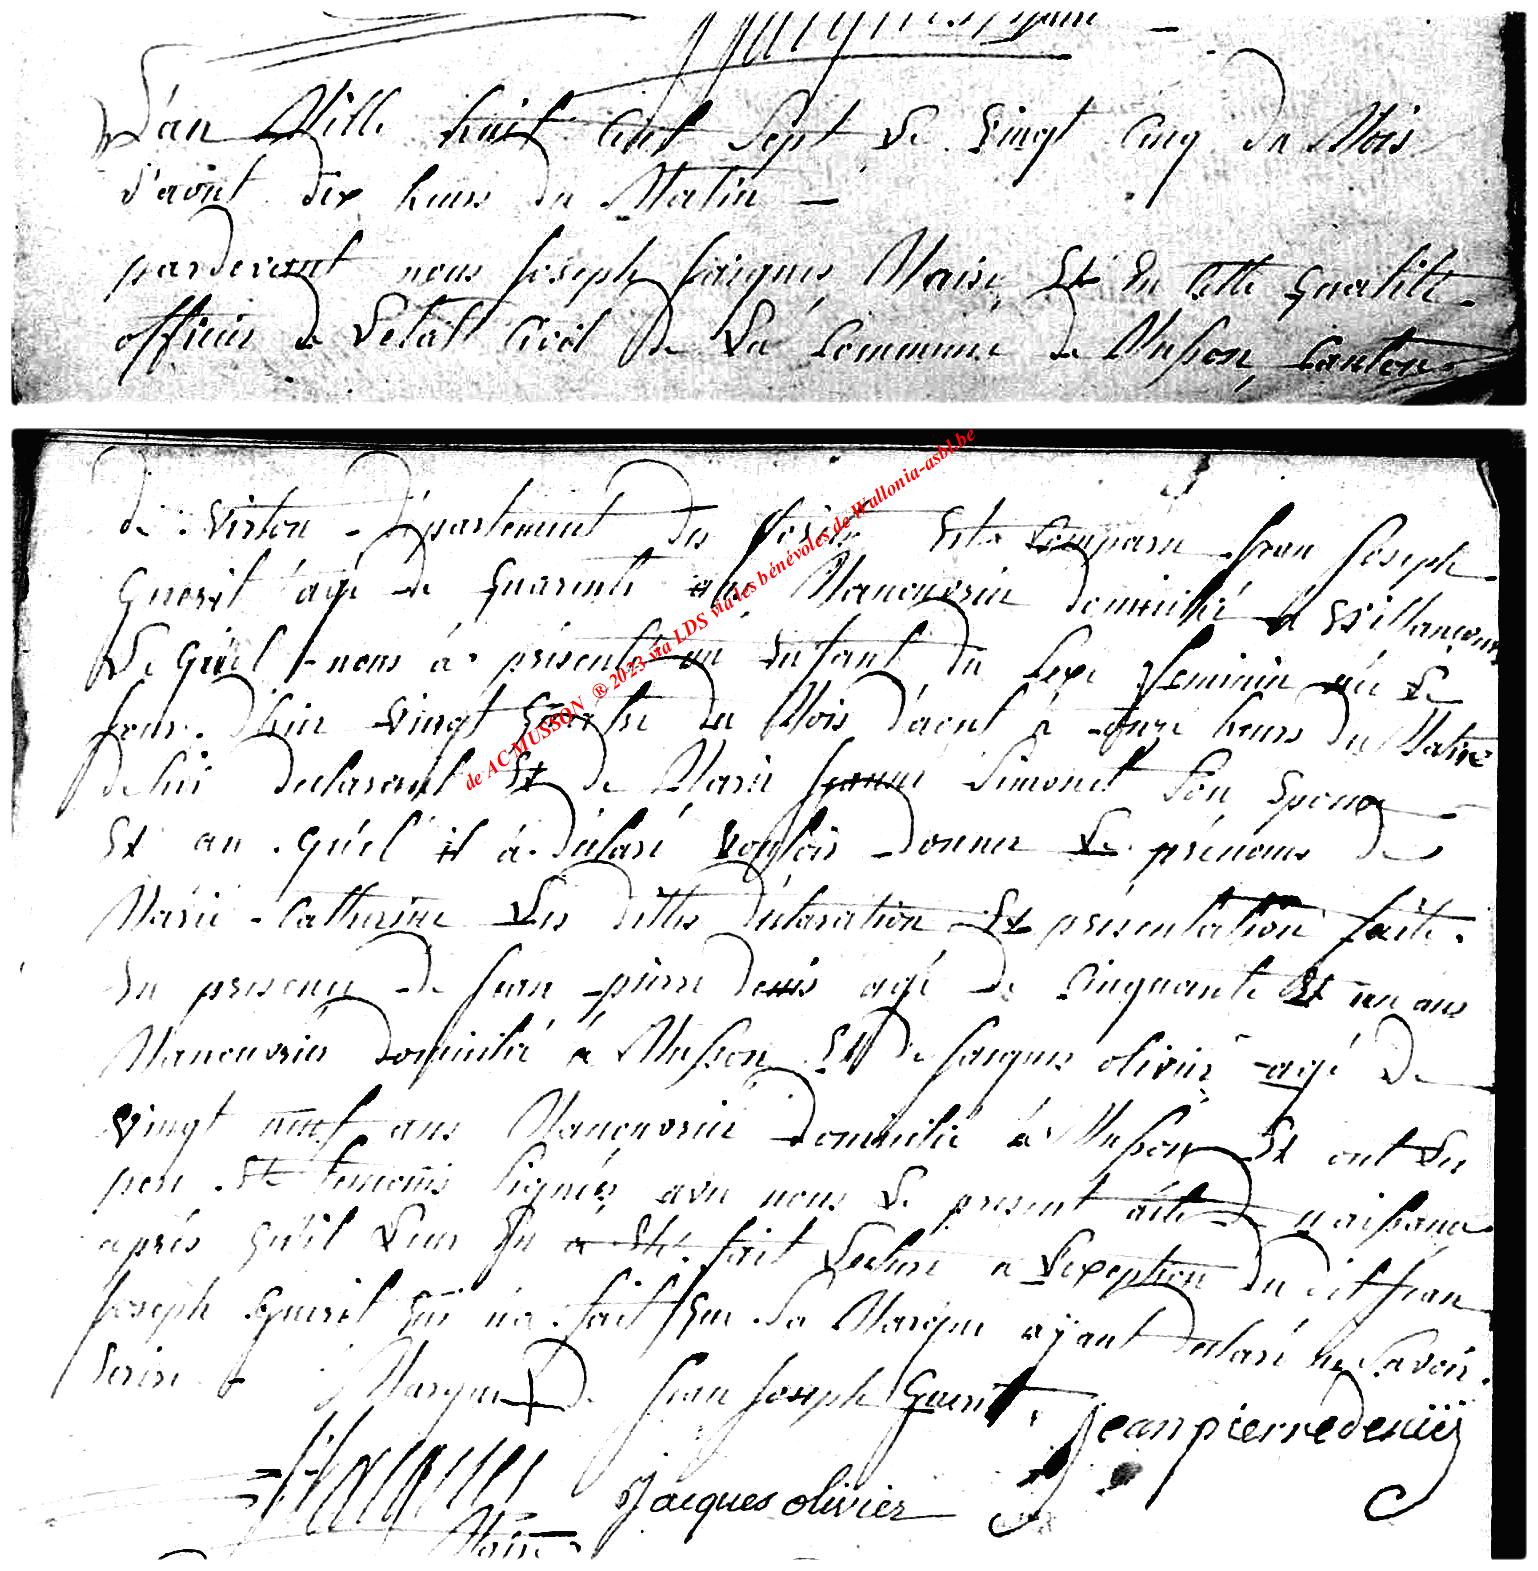 L'an Mille huit Cent Sept Le Vingt Cinq du Mois
d'aout dix heures du Matin —
pardevant nous Joseph Jacques Maire Et En Cette Qualité
officier de Letatt Civil de La Commune de Musson, Canton
de Virton Département des forêts Est Comparu Jean Joseph
Guerit âgé de Quarente ans Manouvrier domicilié à Willancourt
Le Quel nous à présenté un Enfant du Sexe feminin née Le
Jour d'hier Vingt Quatre du Mois d'aout à onze heures du Matin
de lui declarant Et de Marie Jeanne Simonet Son Epouse
Et au Quel il à déclaré Vouloir donner Le prénoms de
Marie Catherine Les dittes déclaration Et présentation faite
En presence de Jean pierre denis agé de Cinquante Et un ans
Manouvrier domicilié a Musson Et De Jacques olivier agé de
Vingt neuf ans Manouvrier domicilié à Musson Et ont Les
pere Et temoins Signés avec nous Le present acte de naissance
après Qu'il Leur En a Eté fait Lecture a Lexception du dit Jean
Joseph Guerit Qui n'a fait Que Sa Marque ayant declaré ne Savoir
Ecrire Marque de Jean Joseph Guerit
jeanpierredeniis
jacques olivier
Maire
de AC MUSSON ® 2023 via LDS via les bénévoles de Wallonia-asbl.be